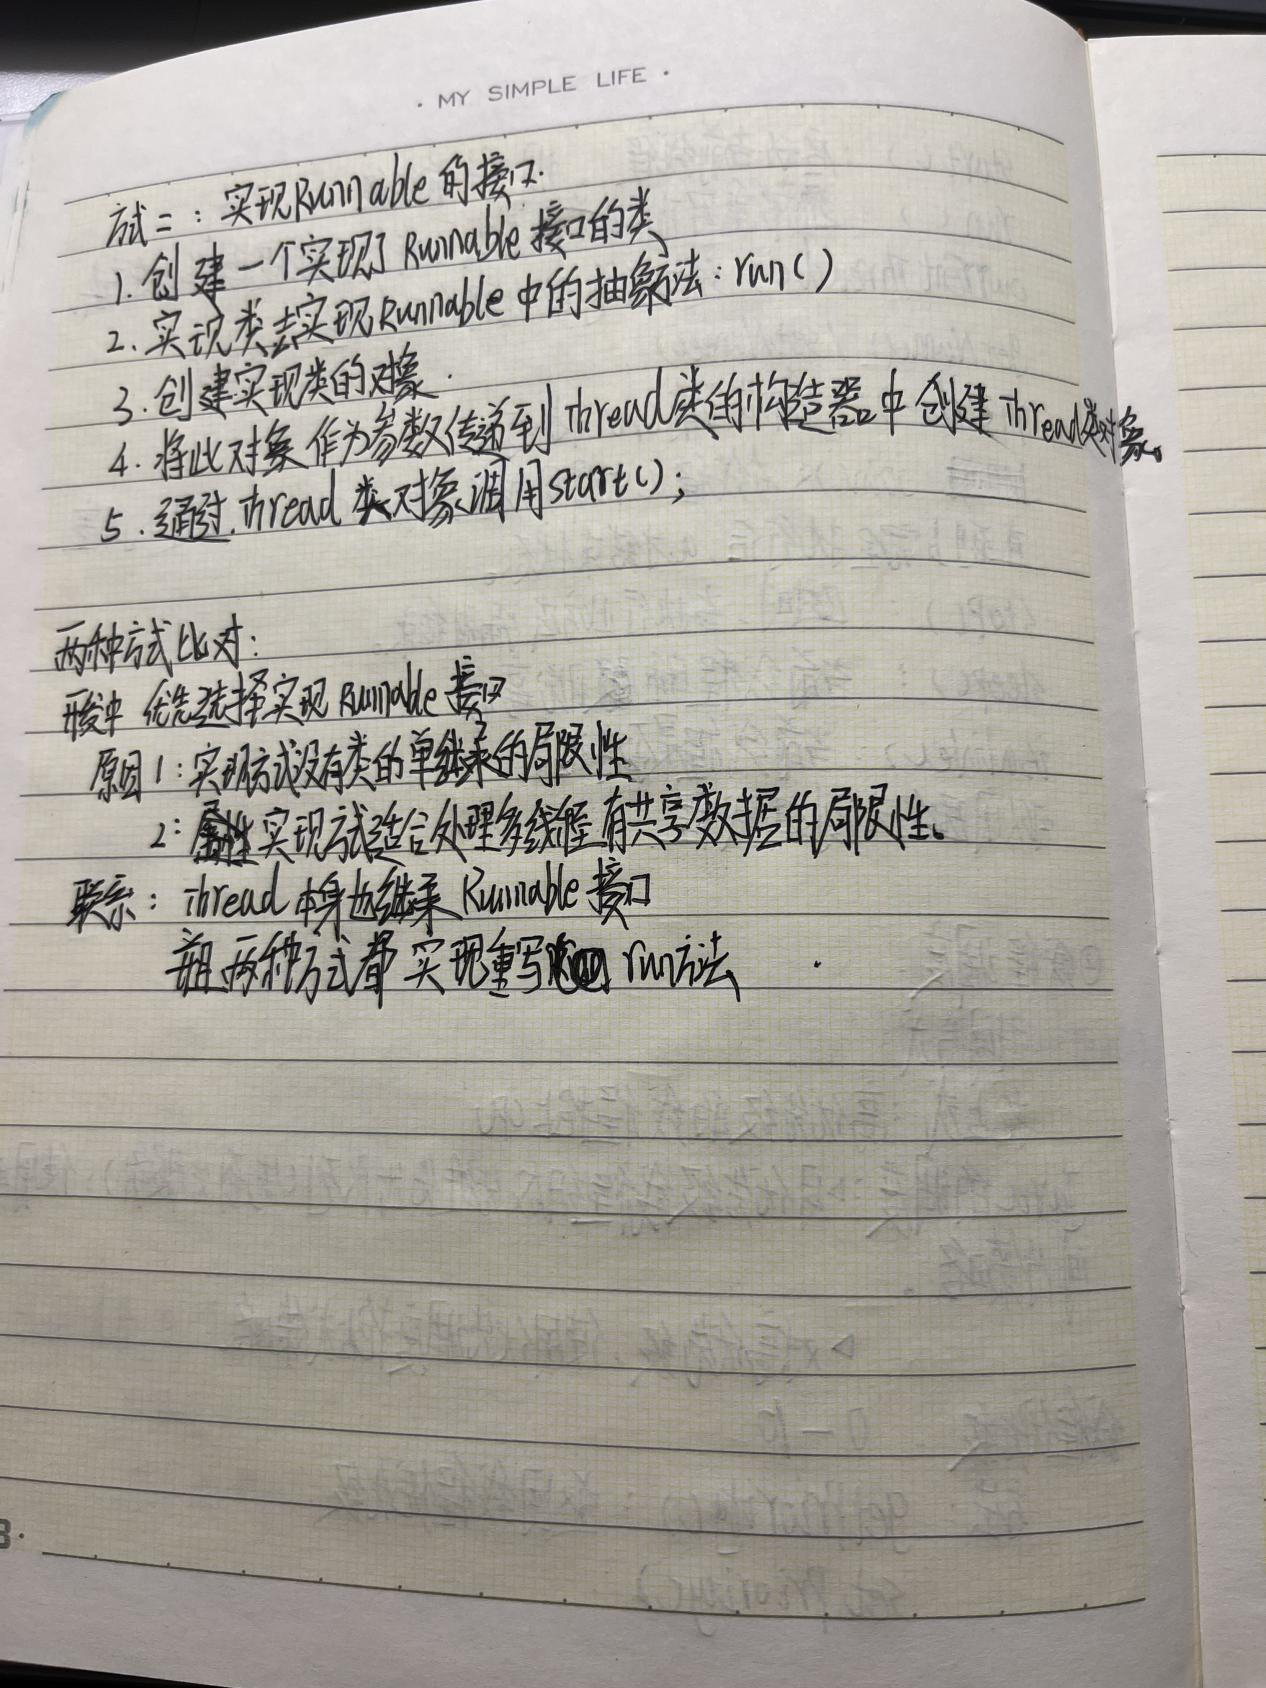 · MY SIMPLE LIFE ·
方式二：实现Runnable的接口.
1. 创建一个实现了Runnable接口的类
2. 实现类去实现Runnable中的抽象方法：run()
3. 创建实现类的对象.
4. 将此对象作为参数传递到Thread类的构造器中创建Thread类对象。
5. 通过Thread类对象调用start();
两种方式比对：
开发中 优先选择实现Runnable接口
原因1：实现方式没有类的单继承的局限性
2：实现方式适合处理多线程有共享数据的局限性。
联系：Thread本身也继承Runnable接口
两种方式都实现重写run方法